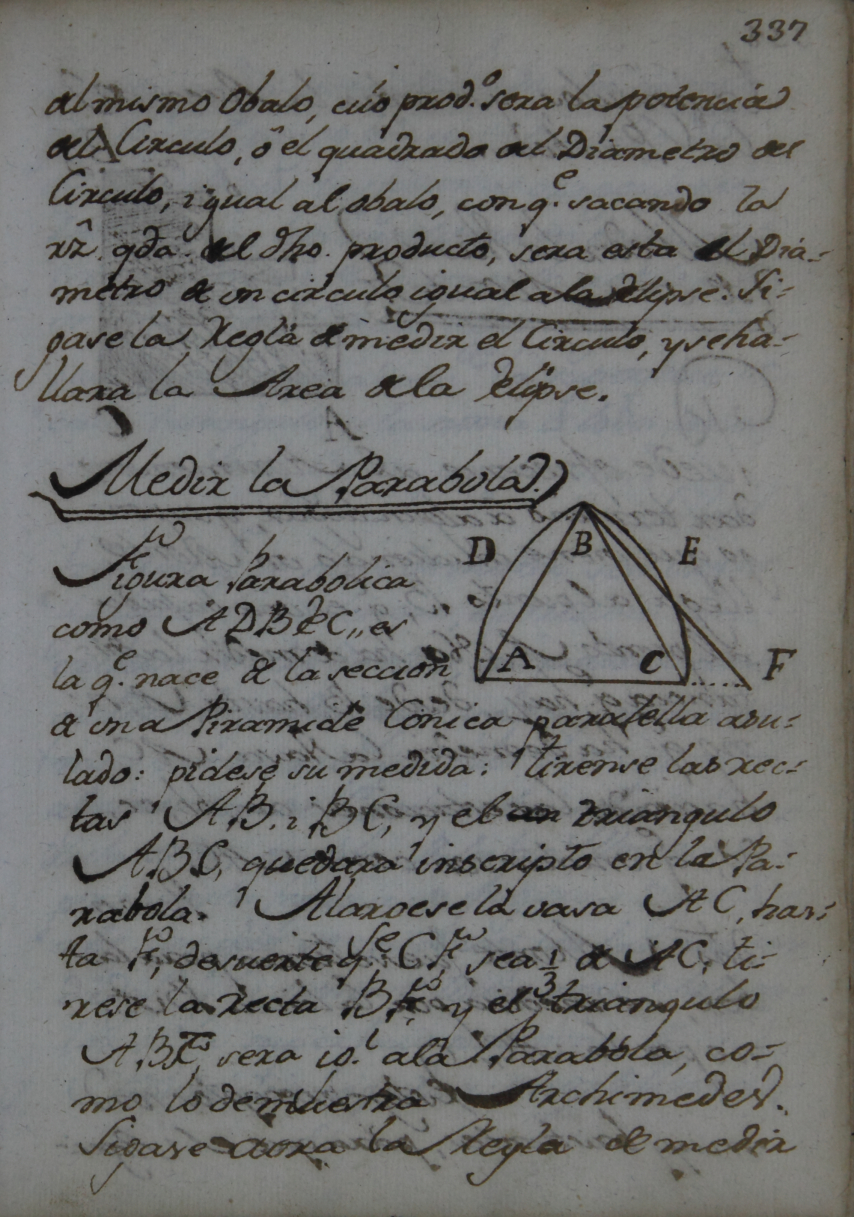 337
del mismo Obalo, cuio prod.º sera la potencia
del Circulo, ô el quadrado del Diametro del
Circulo, igual al obalo, con q.e sacando la
rẑ. qda. del dho. producto, sera esta el Dia-
metro de un circulo igual a la Elipse. Si-
gase la Regla de medir el Circulo, y se ha-
llara la Area de la Elipse.
Medir la Parabola.
D B E
Figura Parabolica
como ADBEC,, es
A C F
la q.e nace de la seccion
de una Piramide Conica paralella a su-
lado: pidese su medida: tirense las rec-
tas AB. i BC, y el triangulo
ABC, quedara inscripto en la Pa-
rabola. Alarguese la vasa AC, has-
ta F, de suerte q.e CF sea 1/3 de AC, ti-
rese la recta BF, y el triangulo
ABF, sera ig.l a la Parabola, co-
mo lo demuestra Archimedes.
Sigase aora la Regla de medir